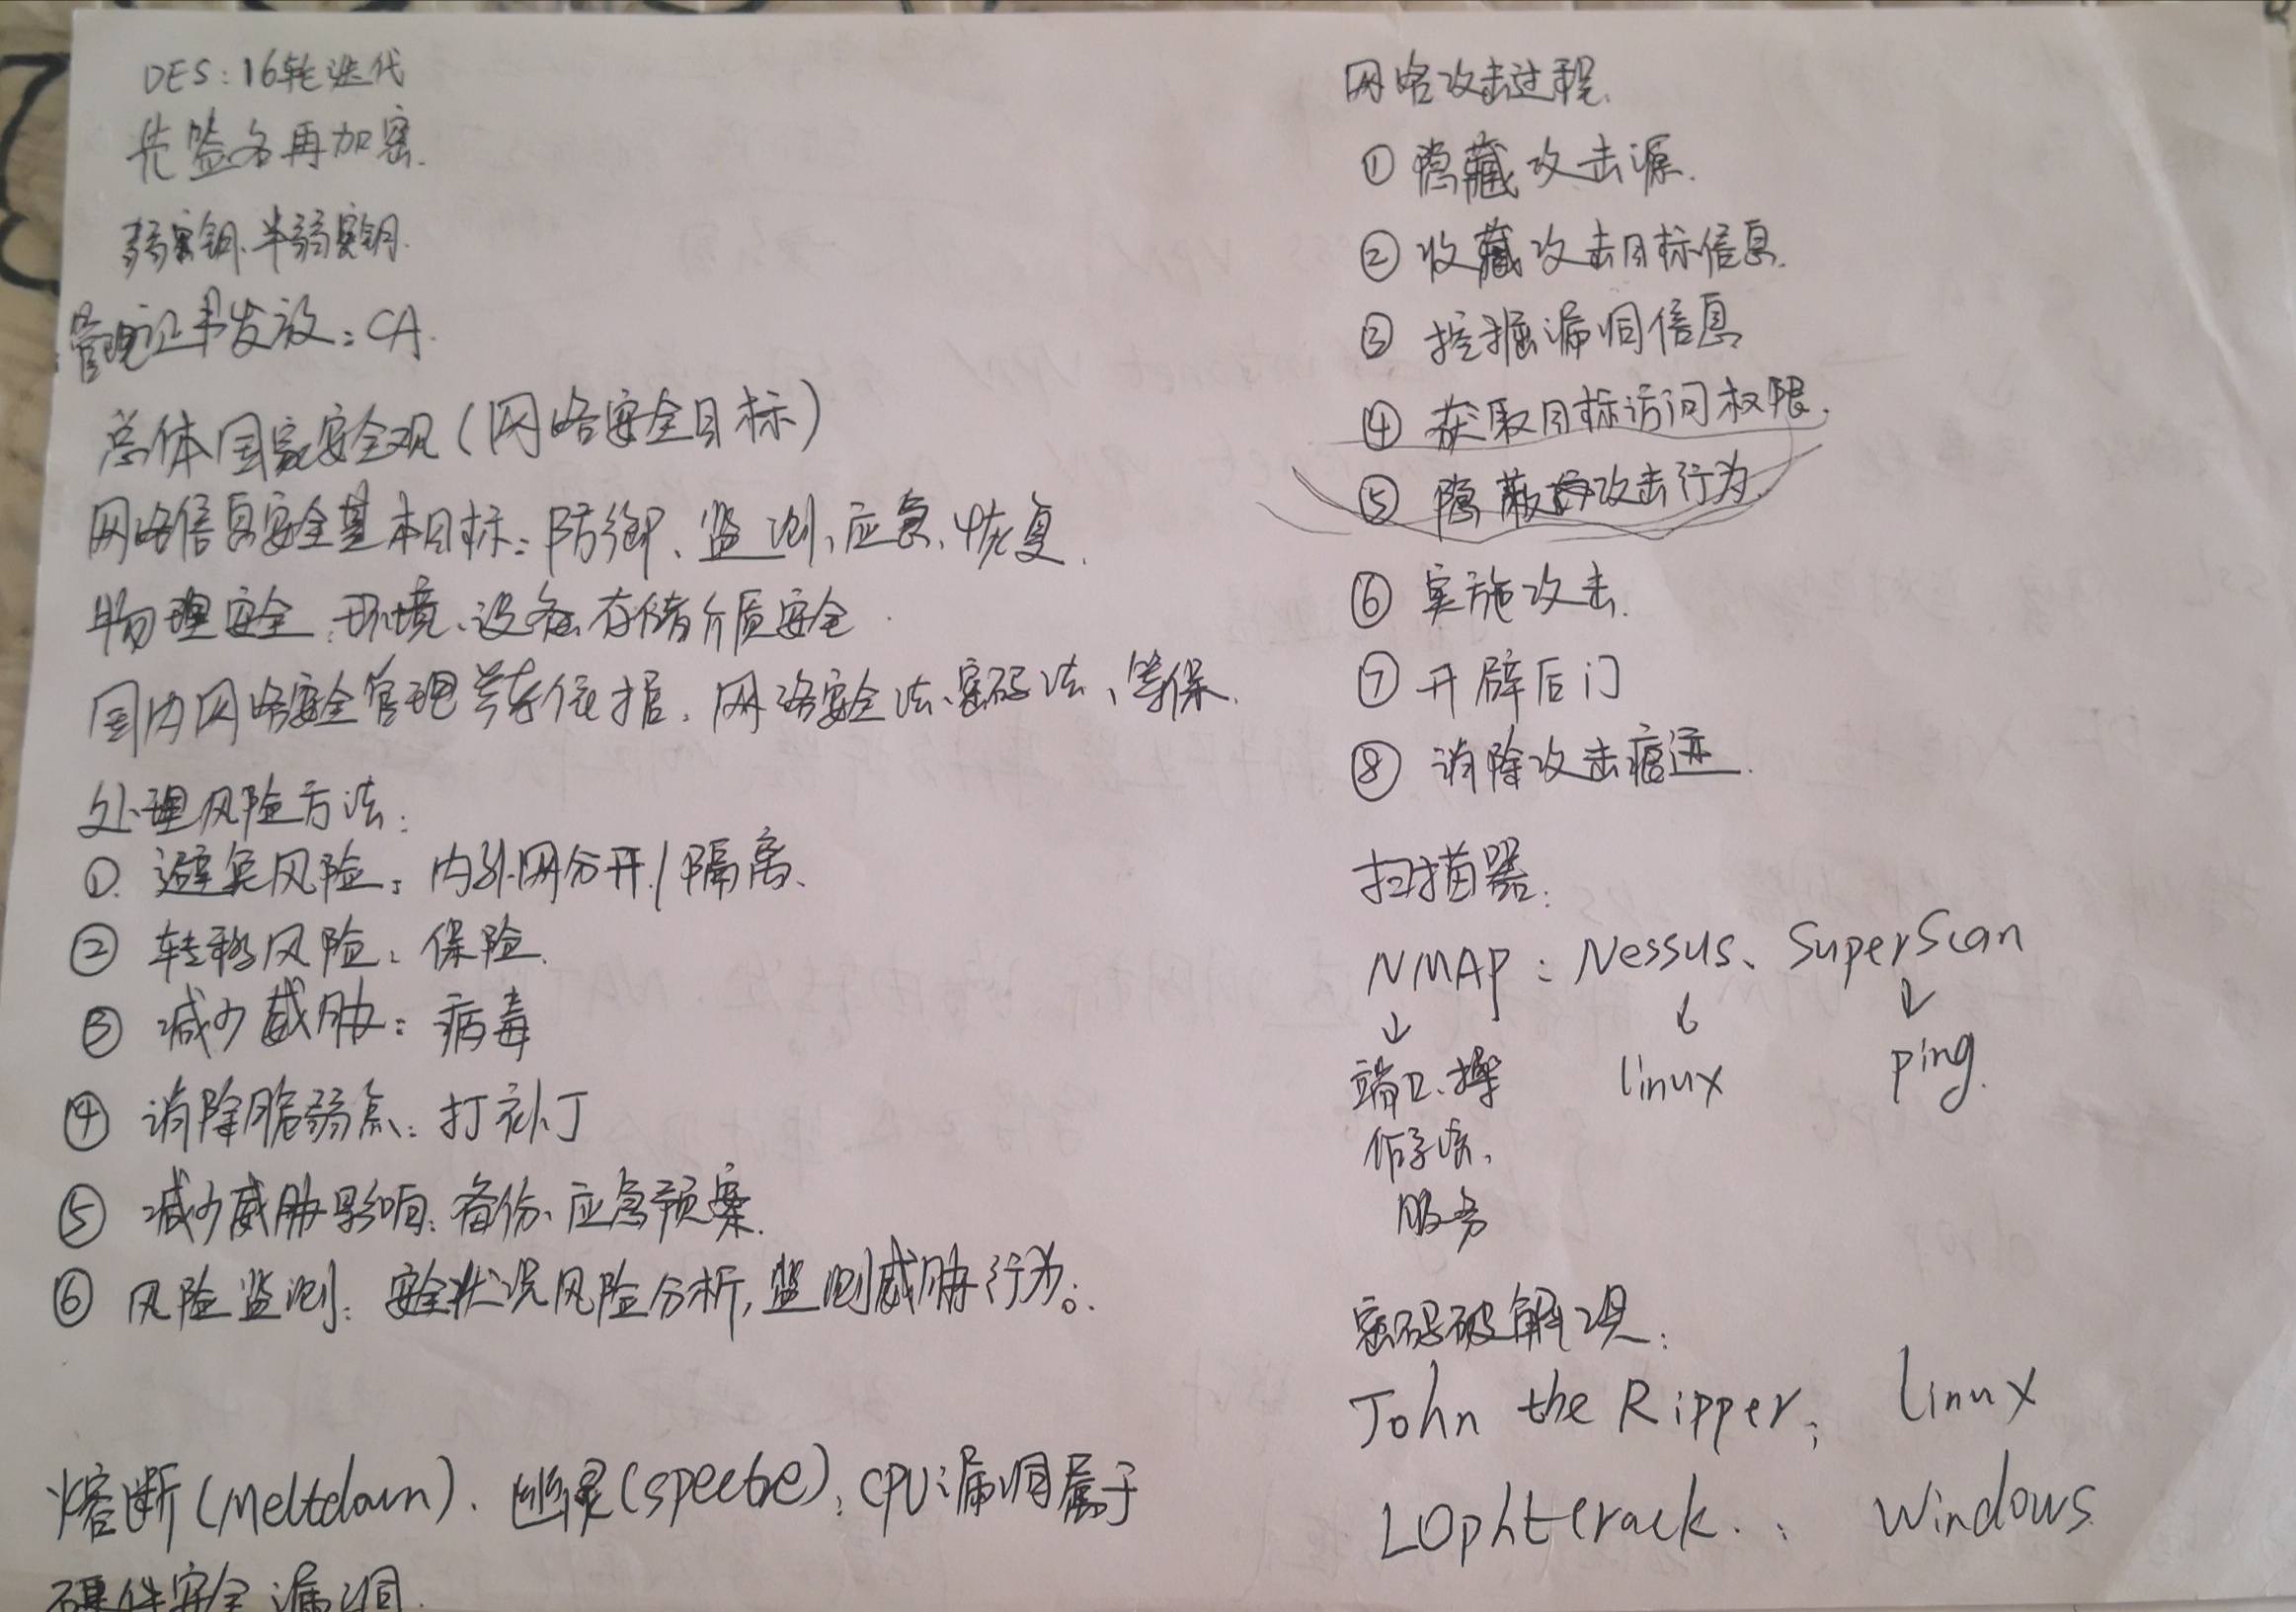 DES：16轮迭代
先签名再加密.
弱密钥.半弱密钥.
管理证书发放：CA.
总体国家安全观(网络安全目标)
网络信息安全基本目标：防御、监测、应急、恢复.
物理安全：环境、设备、存储介质安全.
国内网络安全管理 依据：网络安全法、密码法、等保.
处理风险方法：
① 避免风险：内外网分开/隔离、
② 转移风险：保险.
③ 减少威胁：病毒
④ 消除脆弱点：打补丁
⑤ 减少威胁影响：备份、应急预案.
⑥ 风险监测：安全状况风险分析,监测威胁行为。
熔断(Meltdown)、幽灵(spectre)：CPU漏洞属于
硬件安全漏洞.
网络攻击过程.
① 隐藏攻击源.
② 收藏攻击目标信息.
③ 挖掘漏洞信息
④ 获取目标访问权限.
⑤ 隐蔽攻击行为.
⑥ 实施攻击.
⑦ 开辟后门
⑧ 消除攻击痕迹.
扫描器：
NMAP：Nessus、SuperScan
↓ ↓ ↓
端口、操 linux ping.
作系统、
服务
密码破解工具：
John the Ripper： linux
LOphtcrack.： Windows